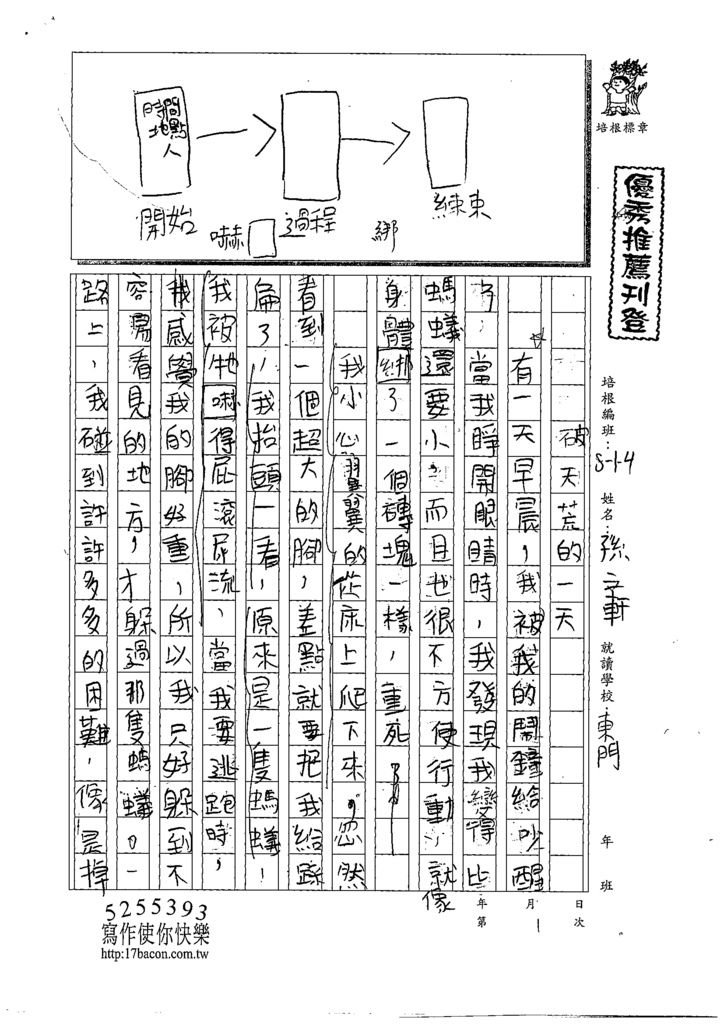 培根標章
優秀推薦刊登
培根編班：S-1-4 姓名：孫立軒 就讀學校：東門 年 班
月1 日次
年第
時間 地點 人
開始
嚇
過程
綁
練束
破天荒的一天
有一天早晨，我被我的鬧鐘給吵醒
了，當我睜開眼睛時，我發現我變得比
螞蟻還要小，而且也很不方便行動，就像
身體綁了一個磚塊一樣，重死了
我小心翼翼的從床上爬下來，忽然
看到一個超大的腳，差點就要把我給踩
扁了，我抬頭一看，原來是一隻螞蟻，
我被牠嚇得屁滾尿流，當我要逃跑時，
我感覺我的腳好重，所以我只好躲到不
容易看見的地方，才躲過那隻螞蟻。一
路上，我碰到許許多多的困難，像是掉
5255393
寫作使你快樂
http:17bacon.com.tw